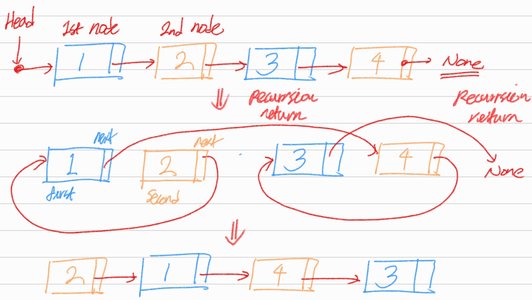 Head 1st node 2nd node
1 2 3 4 None
Recursion return Recursion return
next next
1 2 3 4
first second None
2 1 4 3